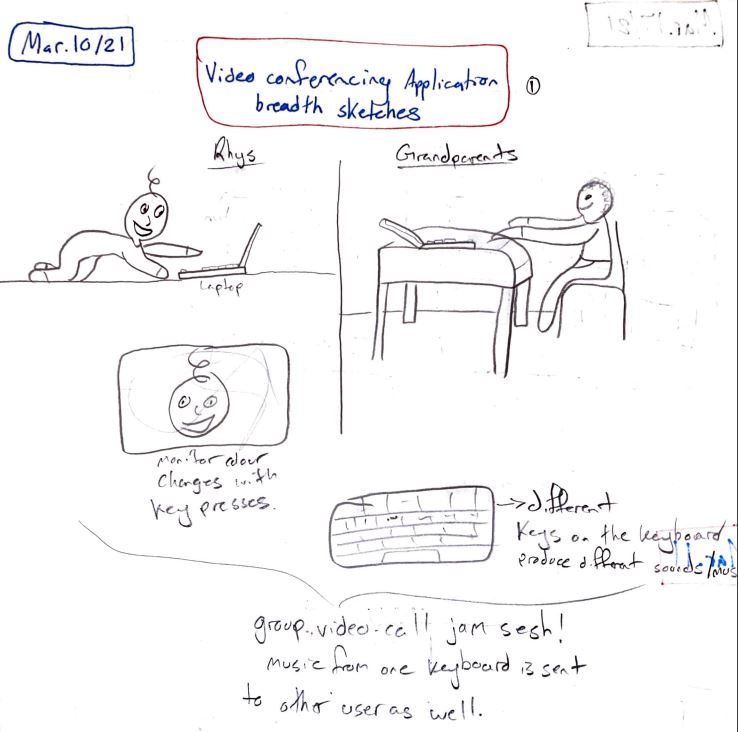 Mar.10/21
Video conferencing Application
breadth sketches
①
Rhys
Grandparents
Laptop
monitor colour
changes with
key presses.
→ different
keys on the keyboard
produce different sounds/mus
group video-call jam sesh!
music from one keyboard is sent
to other user as well.